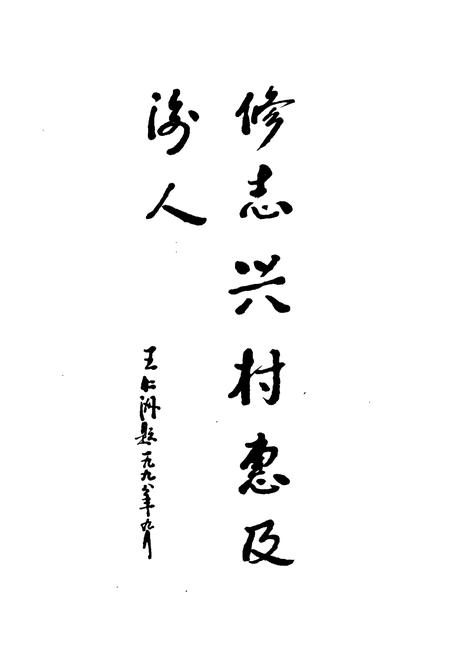 修志兴村惠及
後人
王仁洲题一九九八年九月